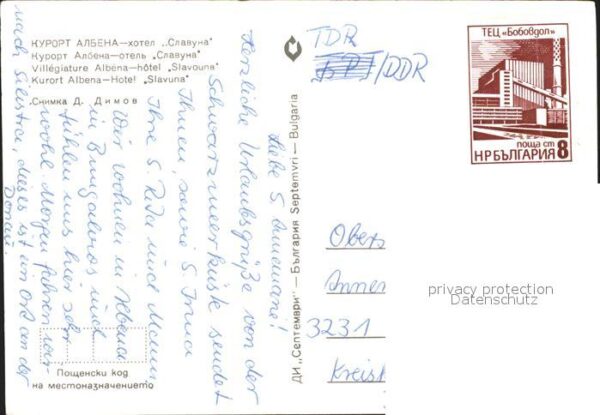 КУРОРТ АЛБЕНА—хотел „Славуна"
Курорт Албена—отель „Славуна"
Villégiature Albena—hôtel „Slavouna"
Kurort Albena—Hotel „Slavuna"
Снимка Д. Димов
Liebe S.
Herzliche Urlaubsgrüße von der
Schwarzmeerküste sendet
Ihnen, sowie S. Irma
Ihre S. und Mann
Wir wohnen in Albena
in Bungalows und
fühlen uns hier sehr
wohl. Morgen fahren wir
nach Silestra, dieses ist ein Ort an der
Donau.
Пощенски код
на местоназначението
ДИ „Септември" — България Septemvri — Bulgaria
TDR
/DDR
ТЕЦ «Бобовдол»
поща ст
НРБЪЛГАРИЯ 8
Obers
Annen
3231
Kreis
privacy protection
Datenschutz